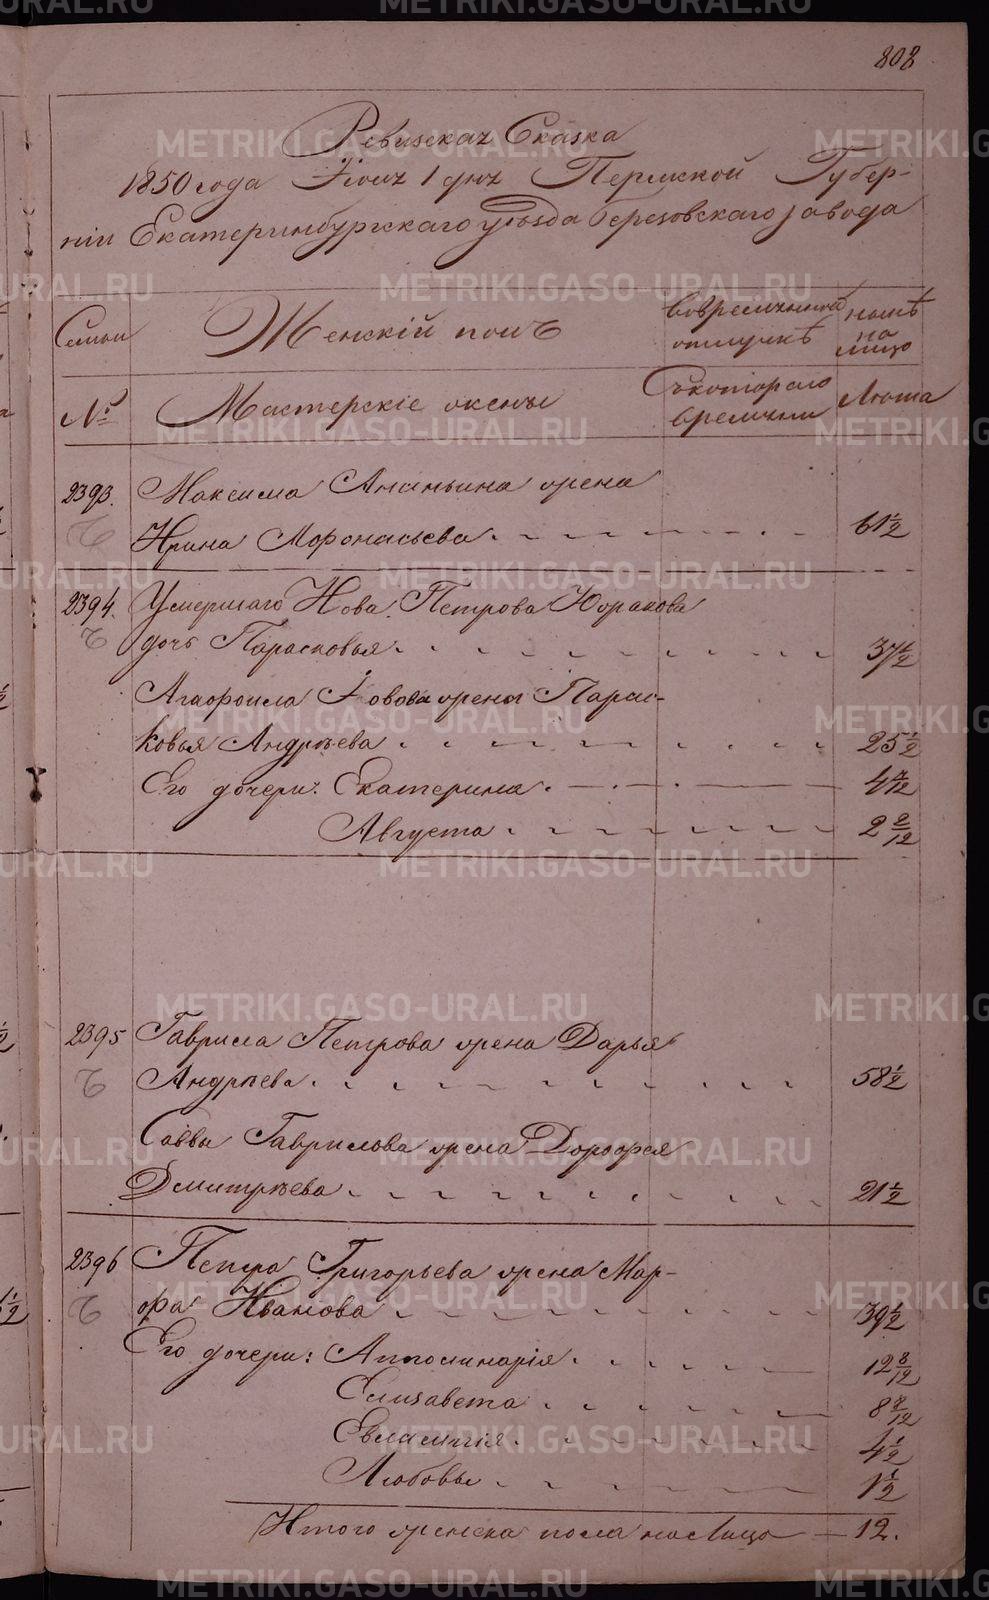 808
Ревизская Сказка
1850 года Іюня 1 дня Пермской Губер-
ніи Екатеринбургскаго уѣзда Березовскаго завода
Семьи
Женскій полъ
Во временной отлучкѣ
нынѣ на лицо
№
Мастерскіе жены
Съ котораго времени
Лѣта
2393. Максима Ананьина жена
Ирина Афонасьева 61 1/2
2394. Умершаго Іова Петрова
дочь Парасковья 37 1/2
Агафонла Іовова жена Парас-
ковья Андрѣева 25 1/2
Его дочери: Екатерина 4 7/12
Августа 2 2/12
2395 Гаврила Петрова жена Дарья
Андрѣева 58 1/2
Саввы Гаврилова жена Дорофея
Дмитрѣева 21 1/2
2396 Петра Григорьева жена Мар-
фа Иванова 39 1/2
Его дочери: Апполинарія 12 8/12
Елизавета 8 8/12
Евлампія 4 1/2
Любовь 1 1/2
Итого женска пола на Лицо — 12.
METRIKI.GASO-URAL.RU